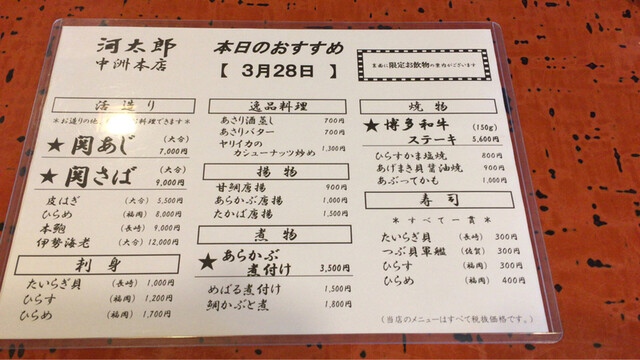 河太郎
中洲本店
本日のおすすめ
【 3月28日 】
裏面に限定お飲物の案内がございます
活造り
＊お造りの他、お料理できます＊
★関あじ (大分) 7,000円
★関さば (大分) 9,000円
皮はぎ (大分) 5,500円
ひらめ (福岡) 8,000円
本鮑 (長崎) 9,000円
伊勢海老 (大分) 12,000円
刺身
たいらぎ貝 (長崎) 1,000円
ひらす (福岡) 1,200円
ひらめ (福岡) 1,700円
逸品料理
あさり酒蒸し 700円
あさりバター 700円
ヤリイカの
カシューナッツ炒め 1,300円
揚物
甘鯛唐揚 900円
あらかぶ唐揚 1,000円
たかば唐揚 1,500円
煮物
★あらかぶ
煮付け 3,500円
めばる煮付け 1,500円
鯛かぶと煮 1,800円
焼物
★博多和牛 (150g)
ステーキ 5,600円
ひらすかま塩焼 800円
あげまき貝醤油焼 900円
あぶってかも 1,000円
寿司
＊すべて一貫＊
たいらぎ貝 (長崎) 300円
つぶ貝軍艦 (佐賀) 300円
ひらす (福岡) 300円
ひらめ (福岡) 400円
(当店のメニューはすべて税抜価格です。)